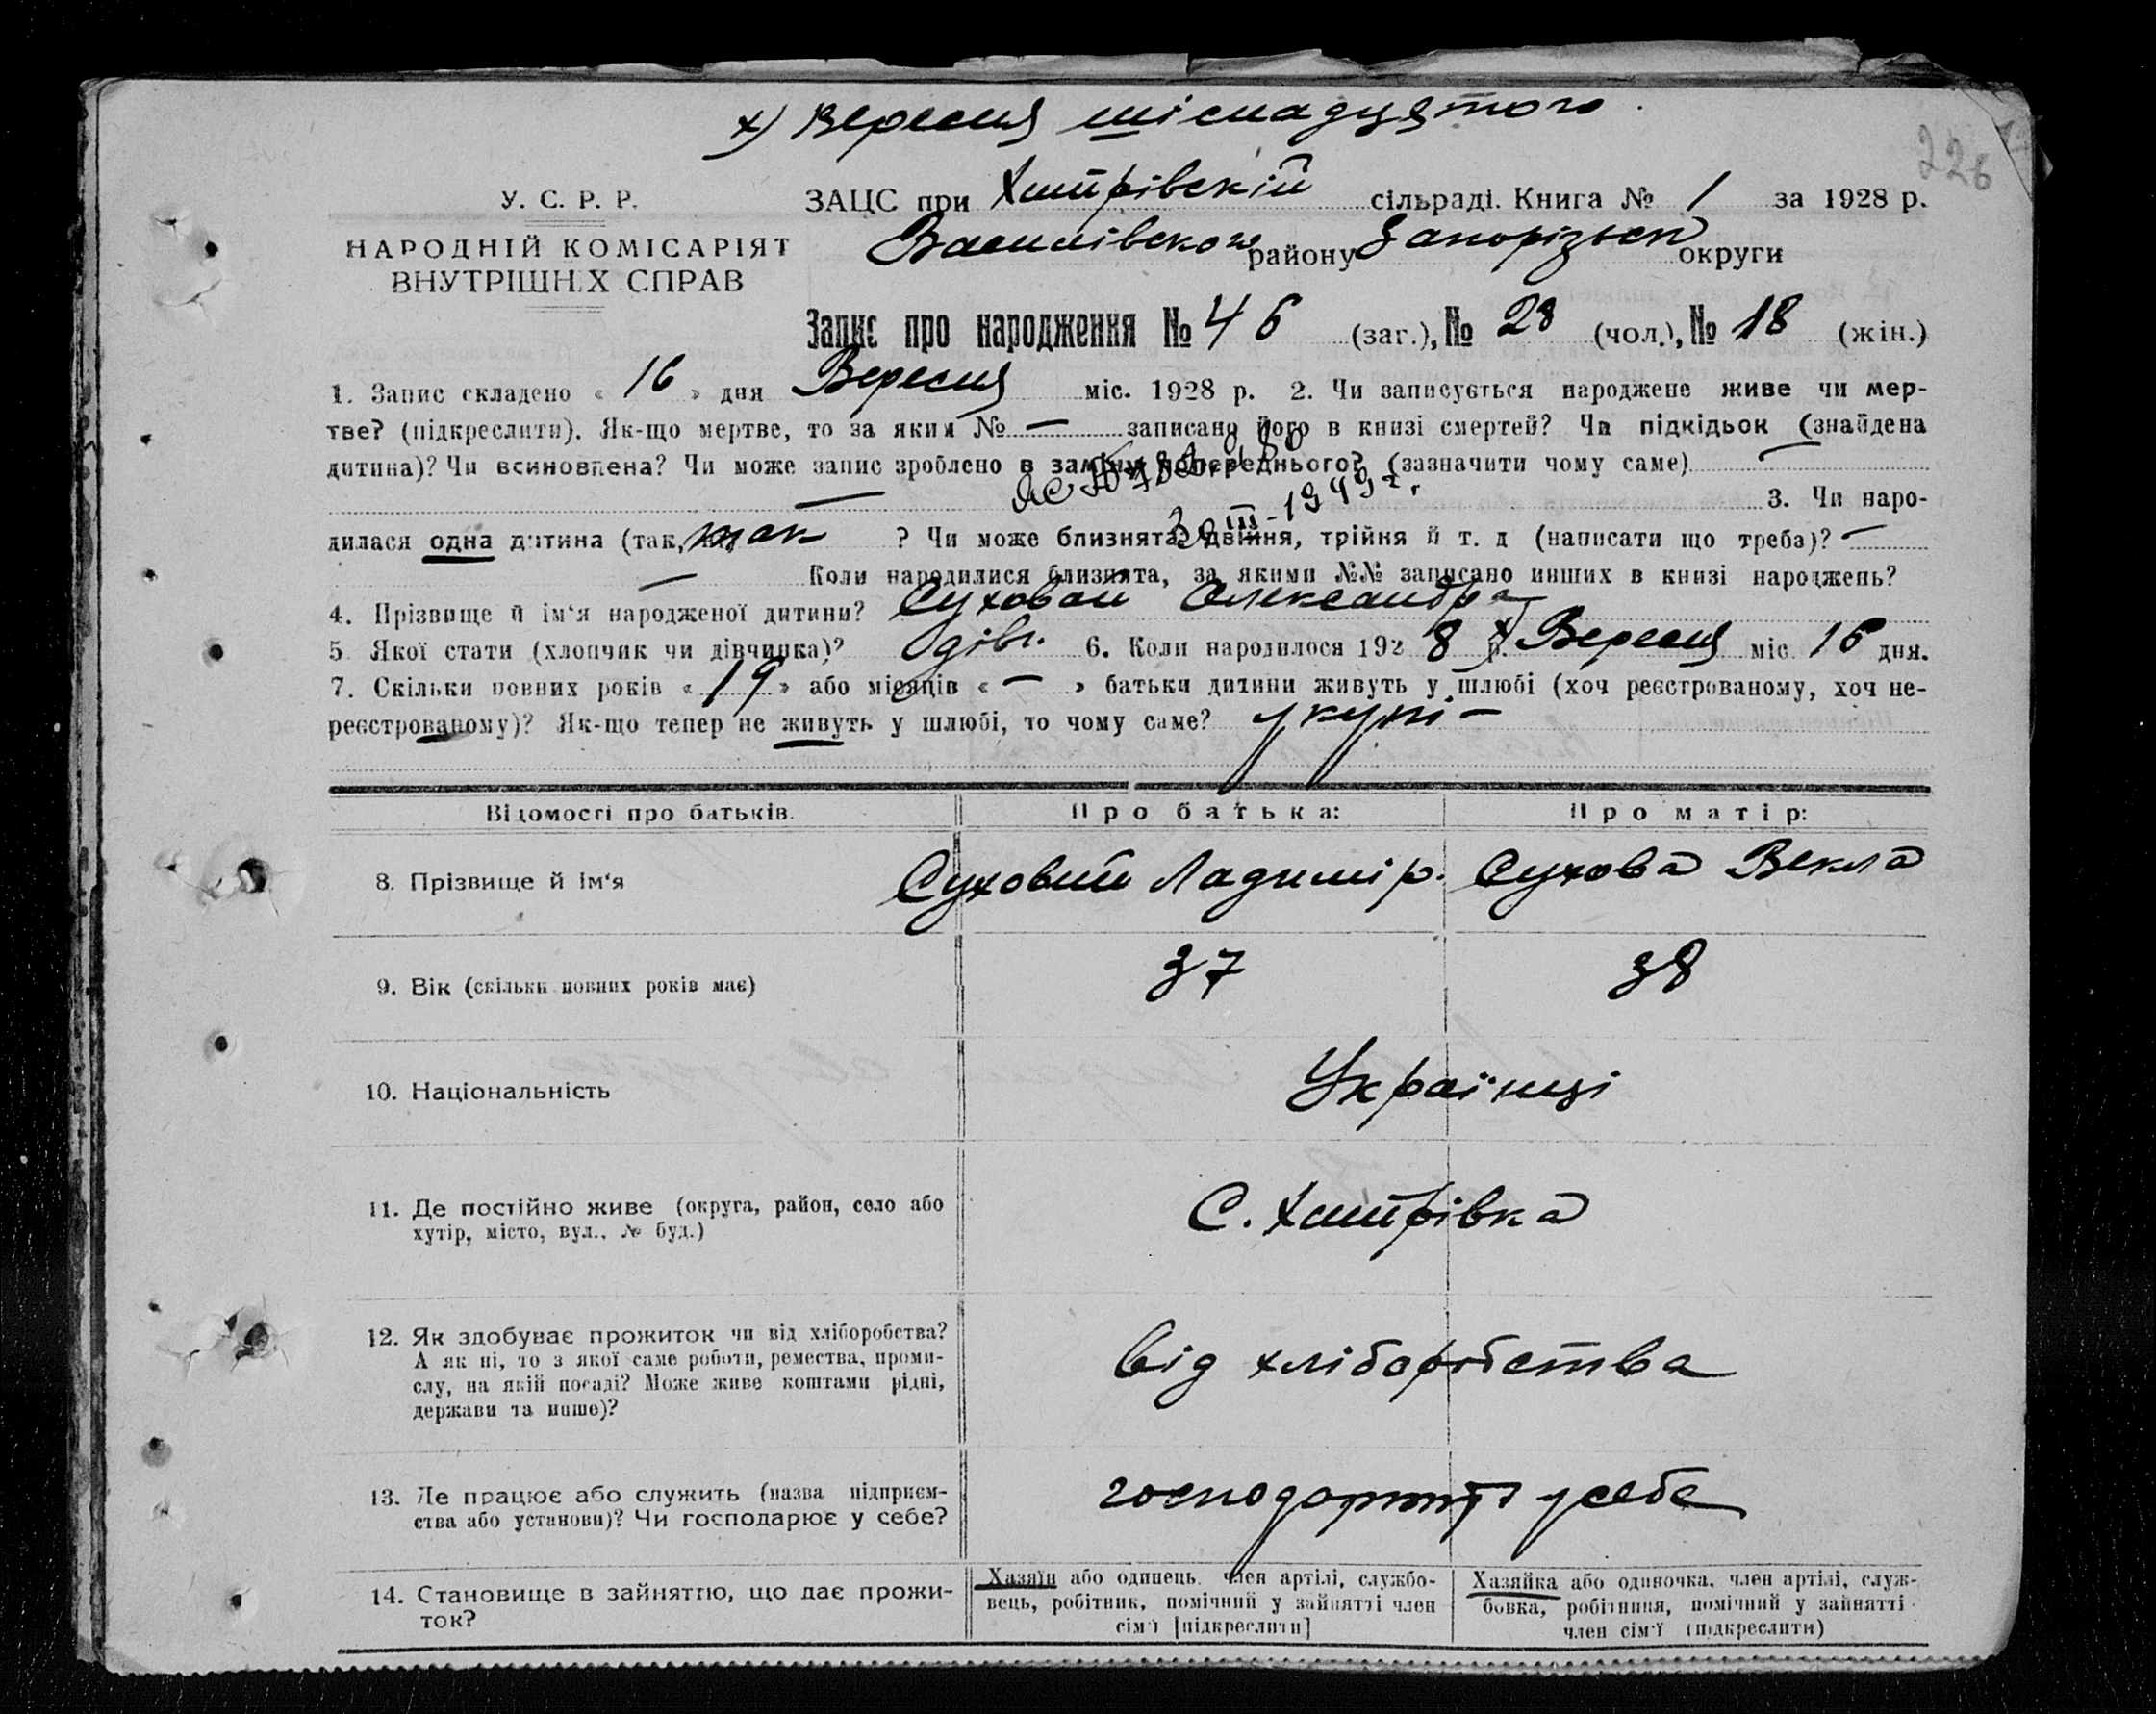 х) Вересня шіснадцятого.
226
У. С. Р. Р.
НАРОДНІЙ КОМІСАРІЯТ
ВНУТРІШНІХ СПРАВ
ЗАЦС при Хитрівскій сільраді. Книга № 1 за 1928 р.
Василівского району Запорізьк округи
Запис про народження № 46 (заг.), № 28 (чол.), № 18 (жін.)
1. Запис складено « 16 » дня Вересня міс. 1928 р. 2. Чи записується народжене живе чи мер-
тве? (підкреслити). Як-що мертве, то за яким № — записано його в книзі смертей? Чи підкідьок (знайдена
дитина)? Чи всиновлена? Чи може запис зроблено в заміну попереднього? (зазначити чому саме) —
— 3. Чи наро-
III-1949 г.
дилася одна дитина (так, ні) так ? Чи може близнята, двійня, трійня й т. д (написати що треба)? —
— Коли народилися близнята, за якими №№ записано инших в книзі народжень?
4. Прізвище й ім‘я народженої дитини? Суховай Олександра
5 Якої стати (хлопчик чи дівчинка)? дівч. 6. Коли народилося 192 8 р. х Вересня міс. 16 дня.
7. Скільки повних років « 19 » або місяців « — » батьки дитини живуть у шлюбі (хоч реєстрованому, хоч не-
реєстрованому)? Як-що тепер не живуть у шлюбі, то чому саме? укупі —
Відомості про батьків. Про батька: Про матір:
8. Прізвище й ім‘я Суховий Ладимір. Сухова Векла
9. Вік (скільки повних років має) 37 38
10. Національність Українці
11. Де постійно живе (округа, район, село або
хутір, місто, вул., № буд.) С. Хитрівка
12. Як здобуває прожиток чи від хліборобства?
А як ні, то з якої саме роботи, ремества, проми-
слу, на якій посаді? Може живе коштами рідні,
держави та инше)? від хліборобства
13. Де працює або служить (назва підприєм-
ства або установи)? Чи господарює у себе? господарюють усебе
14. Становище в зайняттю, що дає прожи-
ток?
Хазяїн або одинець, член артілі, службо-
вець, робітник, помічний у зайнятті член
сім‘ї [підкреслити]
Хазяйка або одиночка, член артілі, служ-
бовка, робітниця, помічний у зайнятті
член сім‘ї (підкреслити)